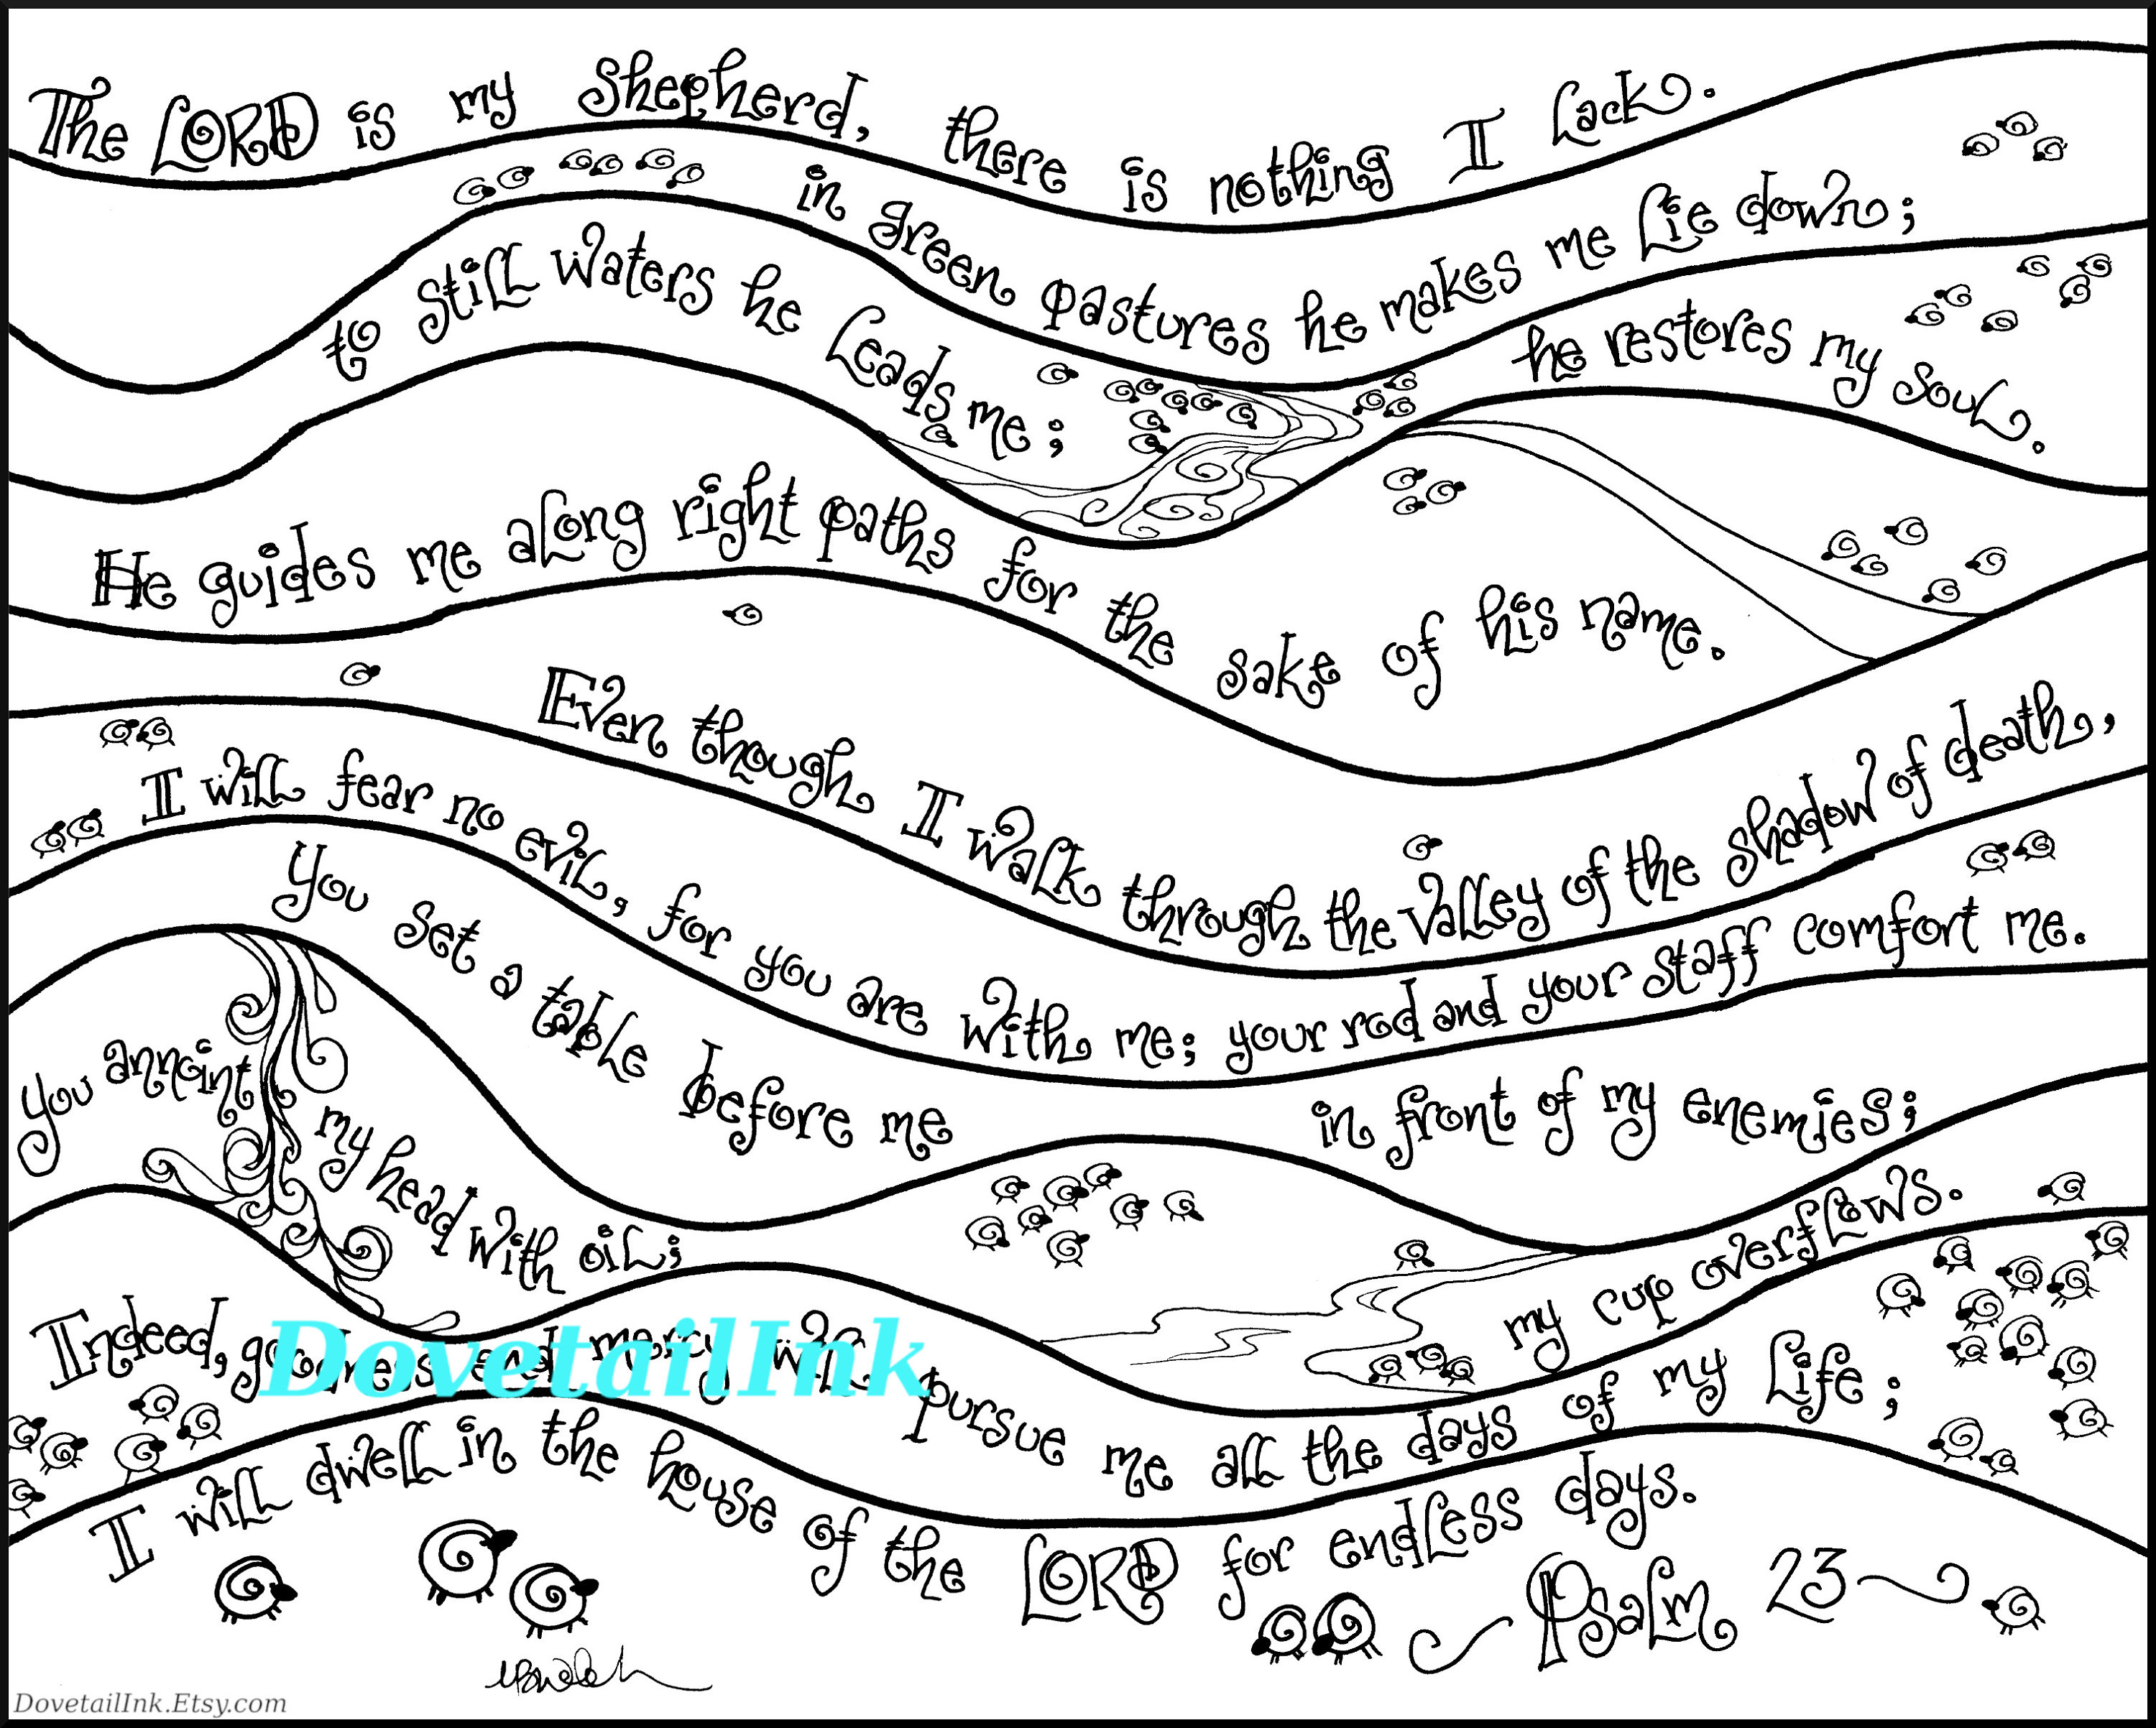 The LORD is my Shepherd, there is nothing I Lack.
in green pastures he makes me Lie down;
to still waters he Leads me;
he restores my souL.
He guides me along right paths for the sake of his name.
Even though I walk through the valley of the shadow of death,
I will fear no evil, for you are with me; your rod and your staff comfort me.
You set a table before me in front of my enemies;
you annoint my head with oil;
my cup overflows.
Indeed, goodness and mercy will pursue me all the days of my Life;
DovetailInk
I will dwell in the house of the LORD for endless days.
Psalm 23
DovetailInk.Etsy.com